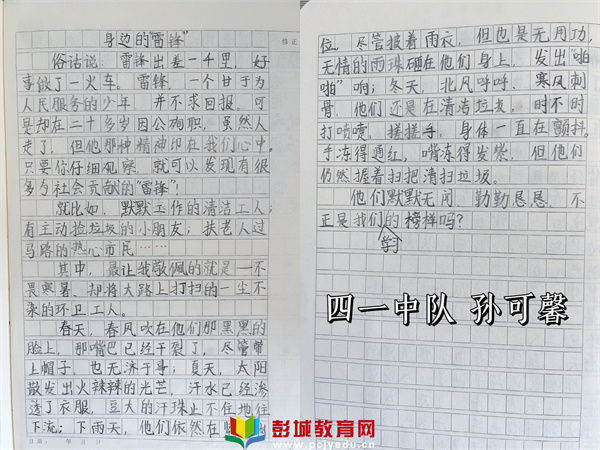 身边的"雷锋"
俗话说：雷锋出差一千里，好
事做了一火车。雷锋，一个甘于为
人民服务的少年，并不求回报。可
是却在二十多岁因公殉职，虽然人
走了，但他那种精神印在我们心中。
只要你仔细观察，就可以发现有很
多为社会贡献的"雷锋"！
就比如，默默工作的清洁工人；
有主动捡垃圾的小朋友；扶老人过
马路的热心市民……
其中，最让我敬佩的就是一不
畏寒暑、却将大路上打扫的一尘不
染的环卫工人。
春天，春风吹在他们那黑黑的
脸上，那嘴巴已经干裂了，尽管带
上帽子，也无济于事；夏天，太阳
散发出火辣辣的光芒，汗水已经渗
透了衣服，豆大的汗珠止不住地往
下流；下雨天，他们依然在
位。尽管披着雨衣，但也是无用功，
无情的雨珠砸在他们身上，发出"啪
啪"响；冬天，北风呼呼、寒风刺
骨，他们还是在清洁垃圾，时不时
打喷嚏，搓搓手，身体一直在颤抖。
手冻得通红，嘴冻得发紫，但他们
仍然握着扫把清扫垃圾。
他们默默无闻，勤勤恳恳，不
正是我们学的榜样吗？
四一中队 孙可馨
彭城教育网
www.pcjyedu.cn